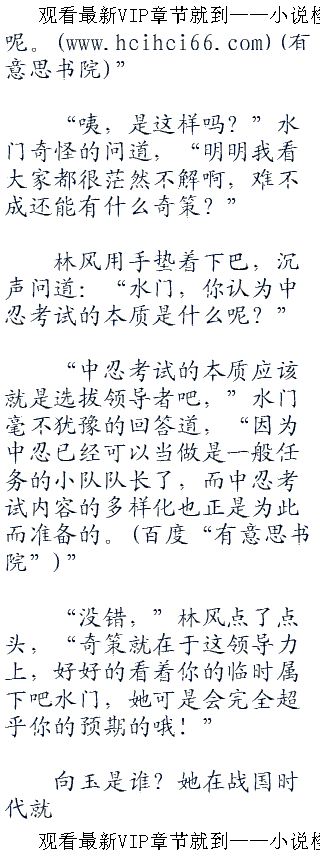 观看最新VIP章节就到——小说
呢。(www.hcihci66.com)(有
意思书院)”
“咦，是这样吗？”水
门奇怪的问道，“明明我看
大家都很茫然不解啊，难不
成还能有什么奇策？”
林风用手垫着下巴，沉
声问道：“水门，你认为中
忍考试的本质是什么呢？”
“中忍考试的本质应该
就是选拔领导者吧，”水门
毫不犹豫的回答道，“因为
中忍已经可以当做是一般任
务的小队队长了，而中忍考
试内容的多样化也正是为此
而准备的。(百度“有意思书
院”)”
“没错，”林风点了点
头，“奇策就在于这领导力
上，好好的看着你的临时属
下吧水门，她可是会完全超
乎你的预期的哦！”
向玉是谁？她在战国时
代就
观看最新VIP章节就到——小说